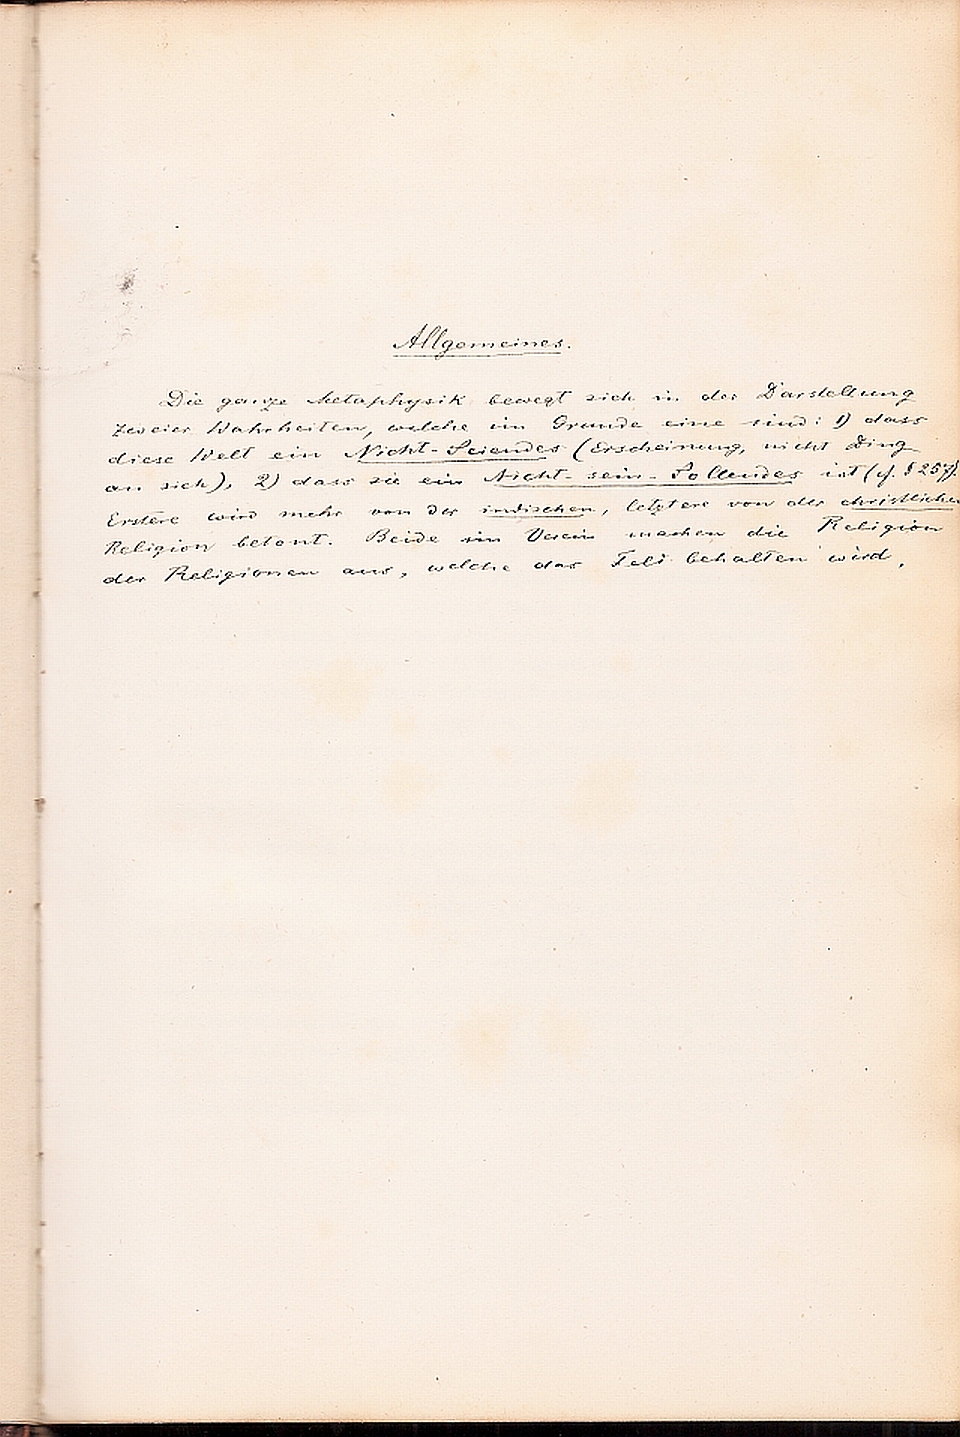 Allgemeines.
Die ganze Metaphysik bewegt sich in der Darstellung
zweier Wahrheiten, welche im Grunde eine sind: 1) dass
diese Welt ein Nicht-Seiendes (Erscheinung, nicht Ding
an sich), 2) dass sie ein Nicht-sein-Sollendes ist (cf. § 257).
Erstere wird mehr von der indischen, letztere von der christlichen
Religion betont. Beide im Verein machen die Religion
der Religionen aus, welche das Feld behalten wird.